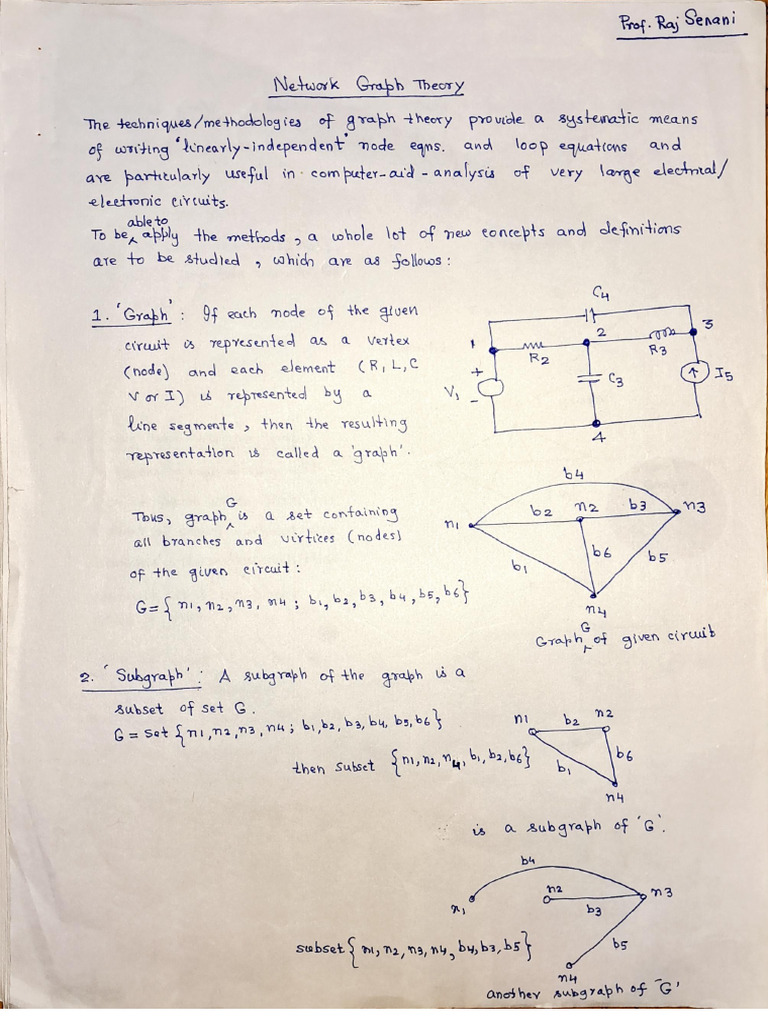 Prof. Raj Senani
Network Graph Theory
The techniques/methodologies of graph theory provide a systematic means
of writing 'linearly-independent' node eqns. and loop equations and
are particularly useful in computer-aid-analysis of very large electrical/
electronic circuits.
able to
To be apply the methods, a whole lot of new concepts and definitions
are to be studied, which are as follows:
1. 'Graph': If each node of the given
circuit is represented as a vertex
(node) and each element (R, L, C
V or I) is represented by a
line segmente, then the resulting
representation is called a 'graph'.
C4
1
2
3
R2
R3
+
V1
-
C3
I5
4
G
Thus, graph is a set containing
all branches and virtices (nodes)
of the given circuit:
G={ n1, n2, n3, n4 ; b1, b2, b3, b4, b5, b6}
b4
n1
b2
n2
b3
n3
b1
b6
b5
n4
G
Graph of given circuit
2. 'Subgraph': A subgraph of the graph is a
subset of set G.
G = set {n1, n2, n3, n4; b1, b2, b3, b4, b5, b6}
then subset {n1, n2, n4, b1, b2, b6}
n1
b2
n2
b1
b6
n4
is a subgraph of 'G'.
b4
n1
n2
n3
b3
b5
subset { n1, n2, n3, n4, b4, b3, b5}
n4
another subgraph of 'G'